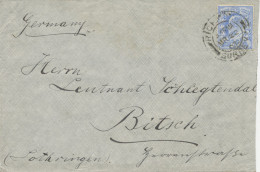 Germany
Herrn
Leutnant Schlegtendal
Bitsch
(Lothringen) Herrenstrasse